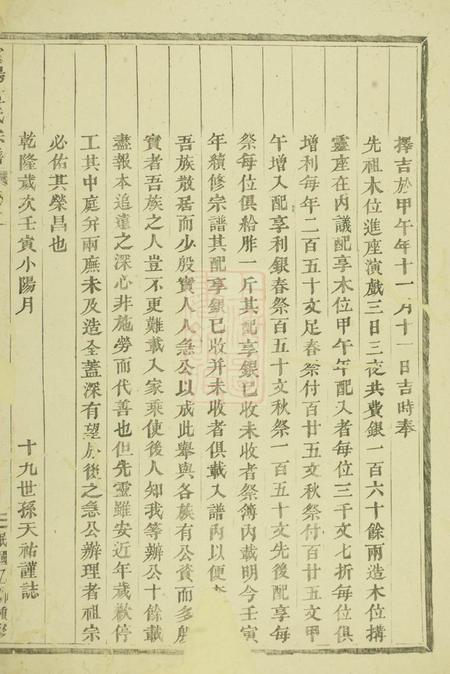 擇吉於甲午年十一月十一日吉時奉
先祖木位進座演戲三日三夜共費銀一百六十餘兩造木位搆
靈座在內議配享木位甲午年配入者每位三千文七折每位俱
增利每年二百五十文足春祭付百廿五文秋祭付百廿五文甲
午增入配享利銀春祭百五十文秋祭一百五十文先後配享每
祭每位俱給胙一斤其配享銀已收未收者祭簿內載明今壬寅
年續修宗譜其配享銀已收并未收者俱載入譜內以便
吾族散居而少殷實人人急公以成此舉與各族有公資而多殷
實者吾族之人豈不更難載入家乘使後人知我等辦公十餘載
盡報本追遠之深心非施勞而代善也但先靈雖安近年歲歉停
工其中庭弁兩廡未及造全蓋深有望於後之急公辦理者祖宗
必佑其榮昌也
乾隆歲次壬寅小陽月
十九世孫天祐謹誌